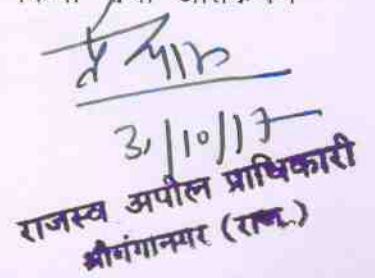 31/10/17
राजस्व अपील प्राधिकारी
श्रीगंगानगर (राज.)